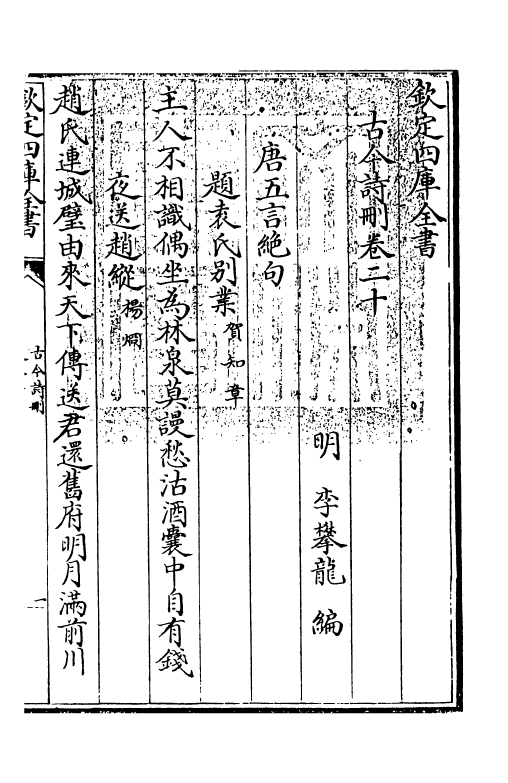 欽定四庫全書
古今詩刪卷二十
明 李攀龍 編
唐五言絶句
題袁氏别業 賀知章
主人不相識偶坐為林泉莫謾愁沽酒囊中自有錢
夜送趙縱 楊烱
趙氏連城璧由來天下傳送君還舊府明月滿前川
欽定四庫全書
古今詩刪
一